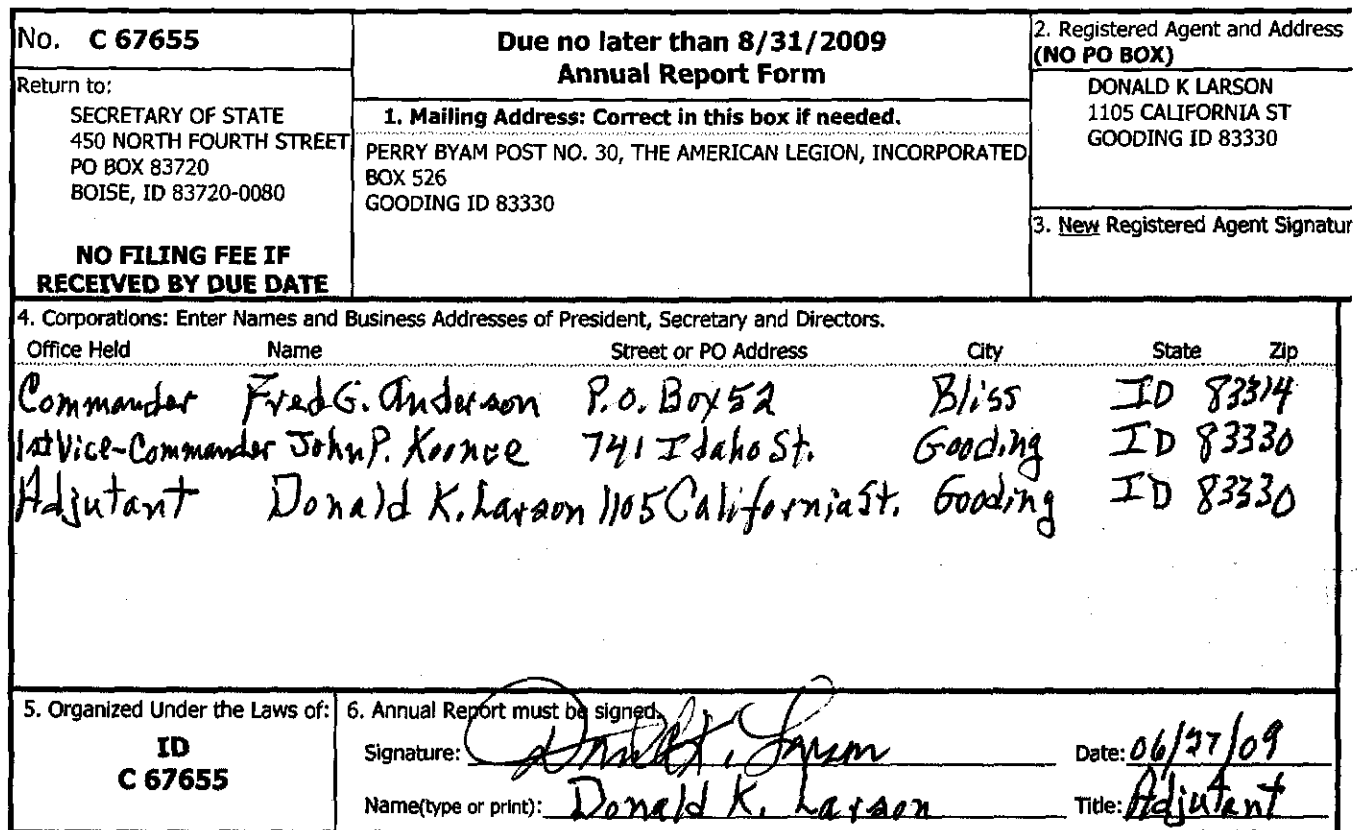 No. C 67655
Return to:
SECRETARY OF STATE
450 NORTH FOURTH STREET
PO BOX 83720
BOISE, ID 83720-0080
NO FILING FEE IF
RECEIVED BY DUE DATE
Due no later than 8/31/2009
Annual Report Form
1. Mailing Address: Correct in this box if needed.
PERRY BYAM POST NO. 30, THE AMERICAN LEGION, INCORPORATED
BOX 526
GOODING ID 83330
2. Registered Agent and Address
(NO PO BOX)
DONALD K LARSON
1105 CALIFORNIA ST
GOODING ID 83330
3. New Registered Agent Signatur
4. Corporations: Enter Names and Business Addresses of President, Secretary and Directors.
Office Held Name Street or PO Address City State Zip
Commander Fred G. Anderson P.O. Box 52 Bliss ID 83314
1st Vice-Commander John P. Koonce 741 Idaho St. Gooding ID 83330
Adjutant Donald K. Larson 1105 California St. Gooding ID 83330
5. Organized Under the Laws of:
ID
C 67655
6. Annual Report must be signed.
Signature: Donald K. Larson Date: 06/27/09
Name(type or print): Donald K. Larson Title: Adjutant